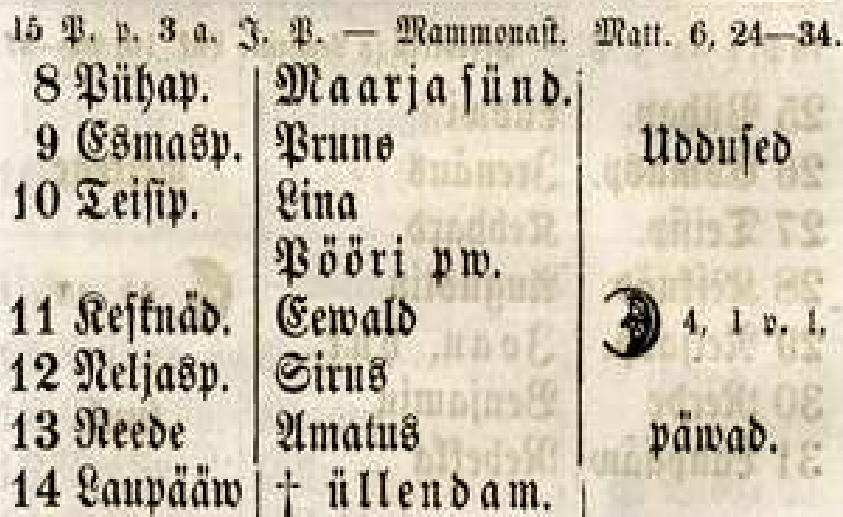 15 P. p. 3 a. J. P. — Mammonast. Matt. 6, 24—34.
8 Pühap. Maarja sünd.
9 Esmasp. Pruno Uddused
10 Teisip. Lina
Pööri pw.
11 Kesknäd. Eewald 4, 1 p. l.
12 Neljasp. Sirus
13 Reede Amatus päwad.
14 Laupääw † üllendam.